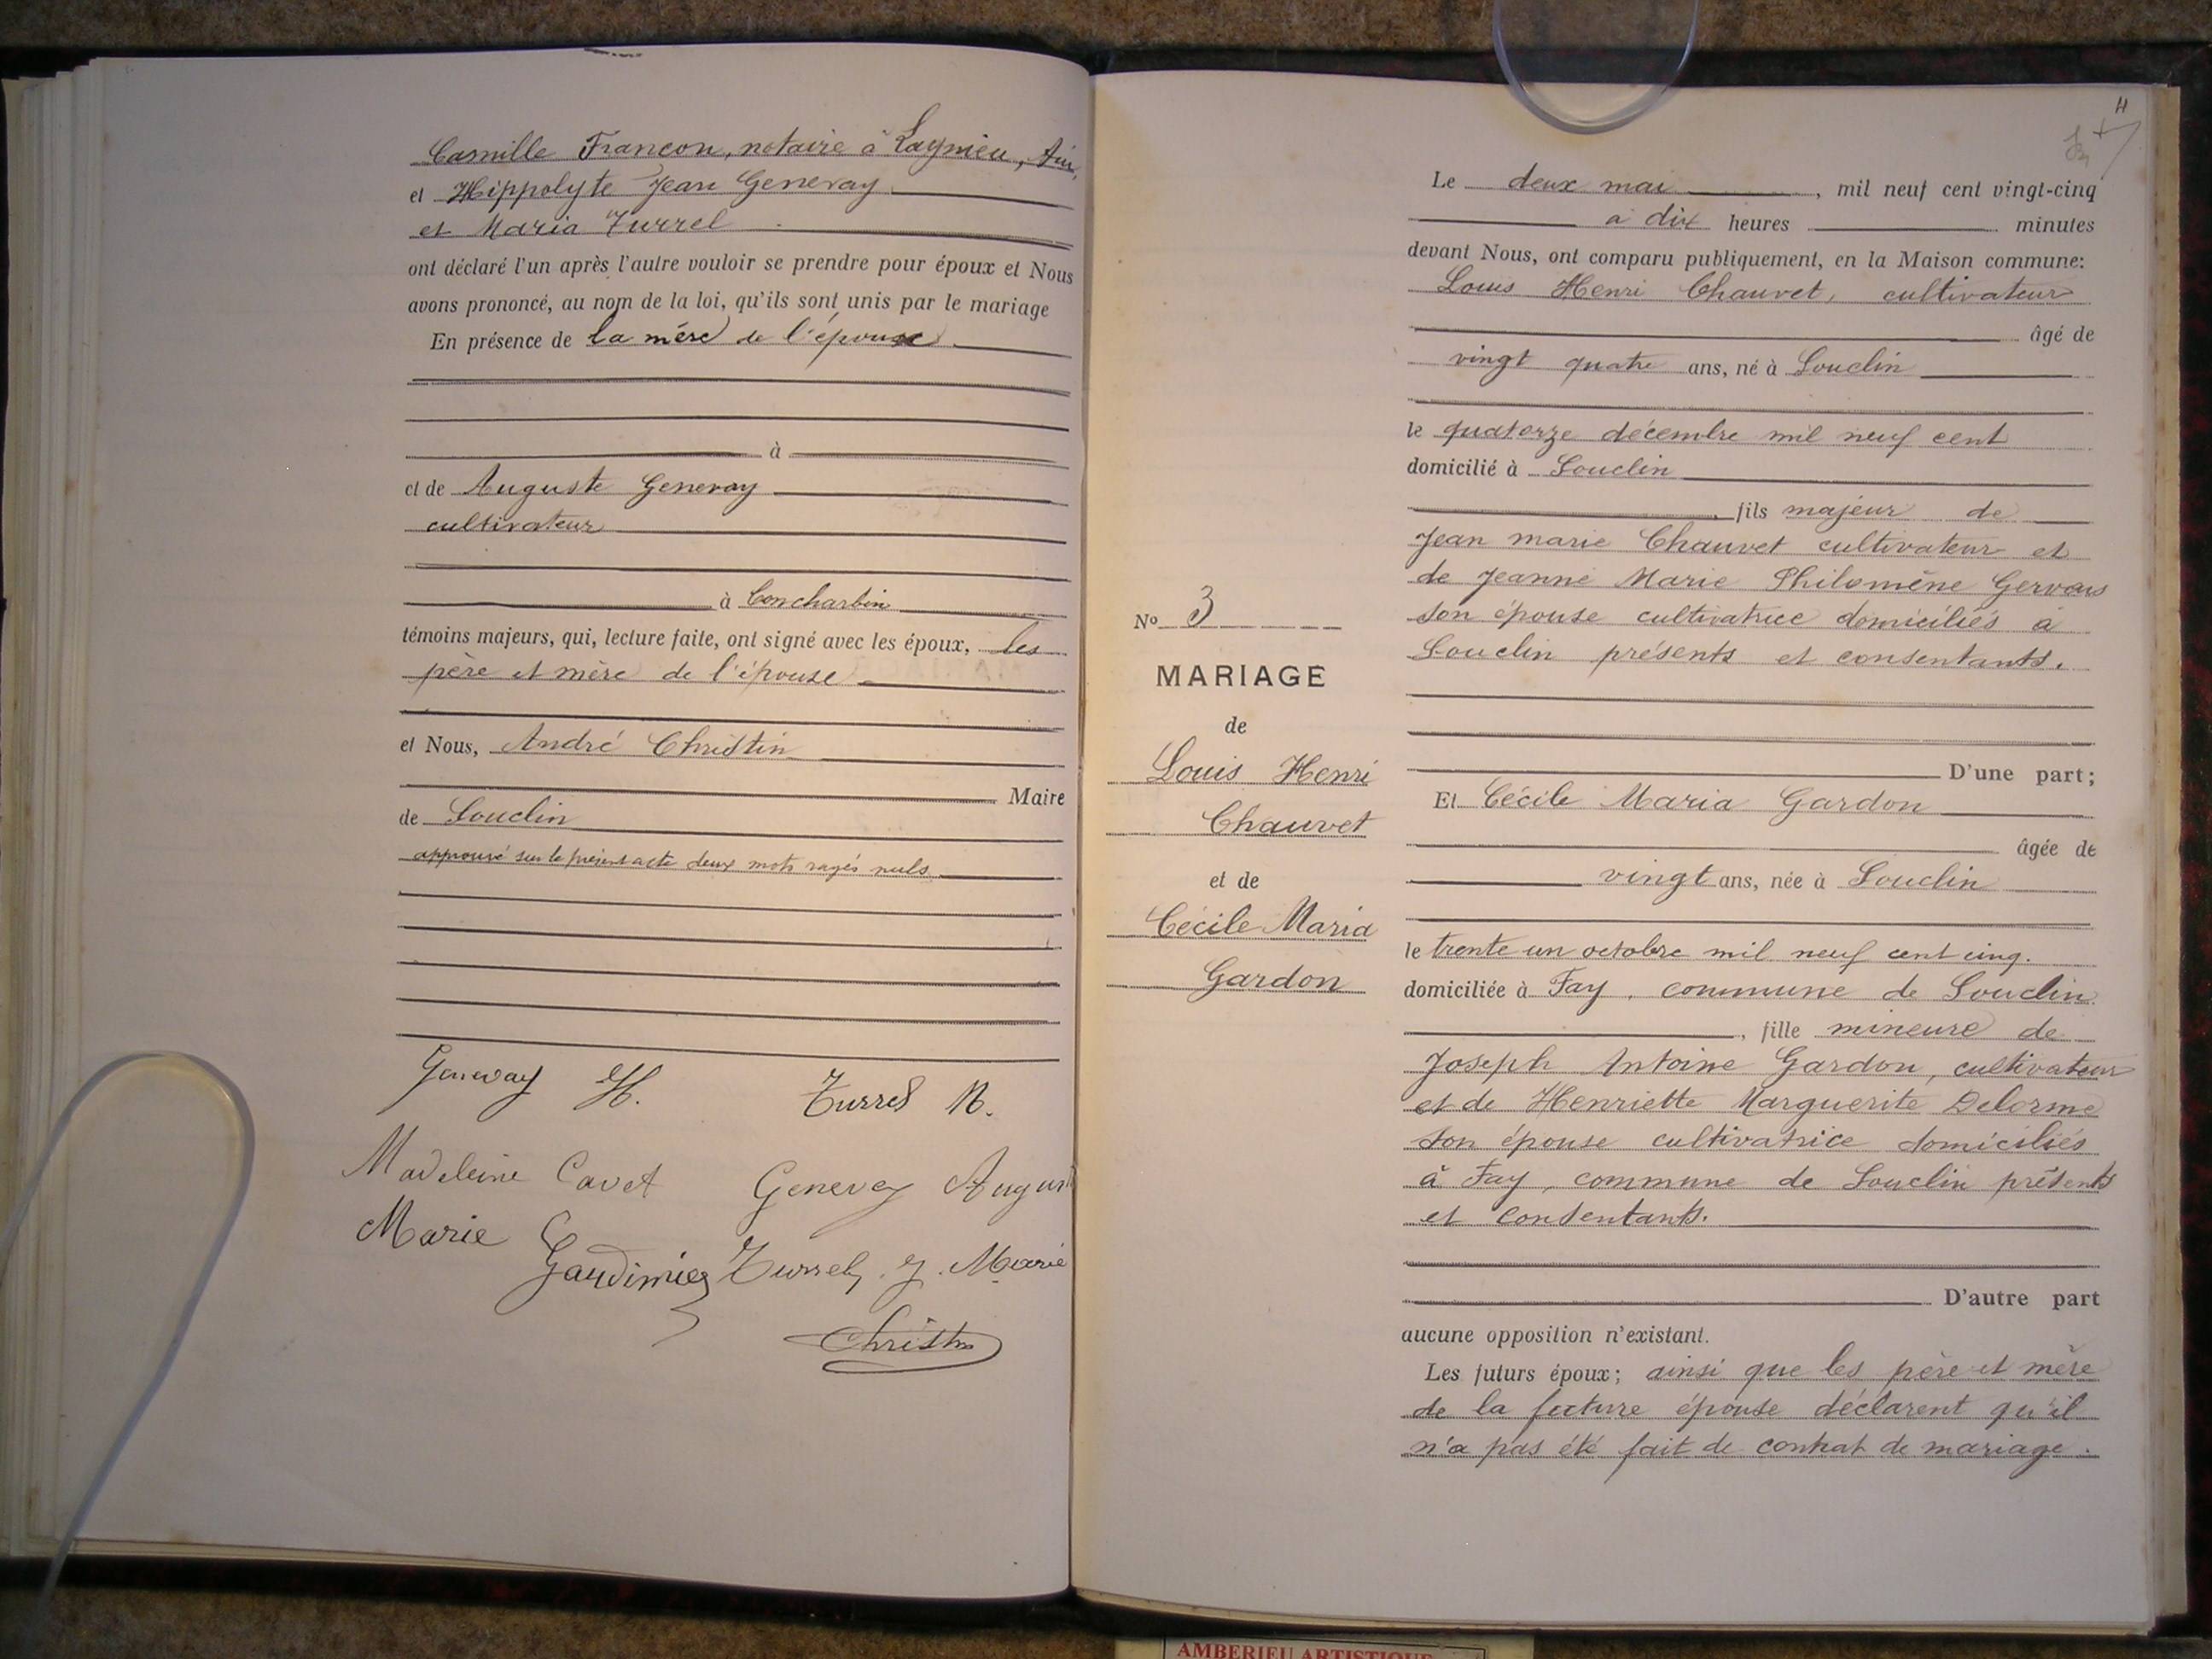 Camille Francon, notaire à Lagnieu, Ain,
et Hippolyte Jean Genevay
et Maria Turrel
ont déclaré l'un après l'autre vouloir se prendre pour époux et Nous
avons prononcé, au nom de la loi, qu'ils sont unis par le mariage
En présence de la mère de l'épouse
à
et de Auguste Genevay
cultivateur
à Concharbin
témoins majeurs, qui, lecture faite, ont signé avec les époux, les
père et mère de l'épouse
et Nous, André Christin
Maire
de Souclin
approuvé sur le présent acte deux mots rayés nuls
Genevay H. Turrel M.
Madeleine Cavet Genevay August
Marie Turrel J. Marie
Christin
4
Le deux mai, mil neuf cent vingt-cinq
à dix heures minutes
devant Nous, ont comparu publiquement, en la Maison commune:
Louis Henri Chauvet, cultivateur
âgé de
vingt quatre ans, né à Souclin
le quatorze décembre mil neuf cent
domicilié à Souclin
, fils majeur de
Jean marie Chauvet cultivateur et
de Jeanne Marie Philomène Gervais
son épouse cultivatrice domiciliés à
Souclin présents et consentants.
D'une part;
Et Cécile Maria Gardon
âgée de
vingt ans, née à Souclin
le trente un octobre mil neuf cent cinq.
domiciliée à Fay, commune de Souclin
, fille mineure de
Joseph Antoine Gardon, cultivateur
et de Henriette Marguerite Delorme
son épouse cultivatrice domiciliés
à Fay, commune de Souclin présents
et consentants.
D'autre part
aucune opposition n'existant.
Les futurs époux; ainsi que les père et mère
de la future épouse déclarent qu'il
n'a pas été fait de contrat de mariage.
No 3
MARIAGE
de
Louis Henri
Chauvet
et de
Cécile Maria
Gardon
AMBERIEU ARTISTIQUE